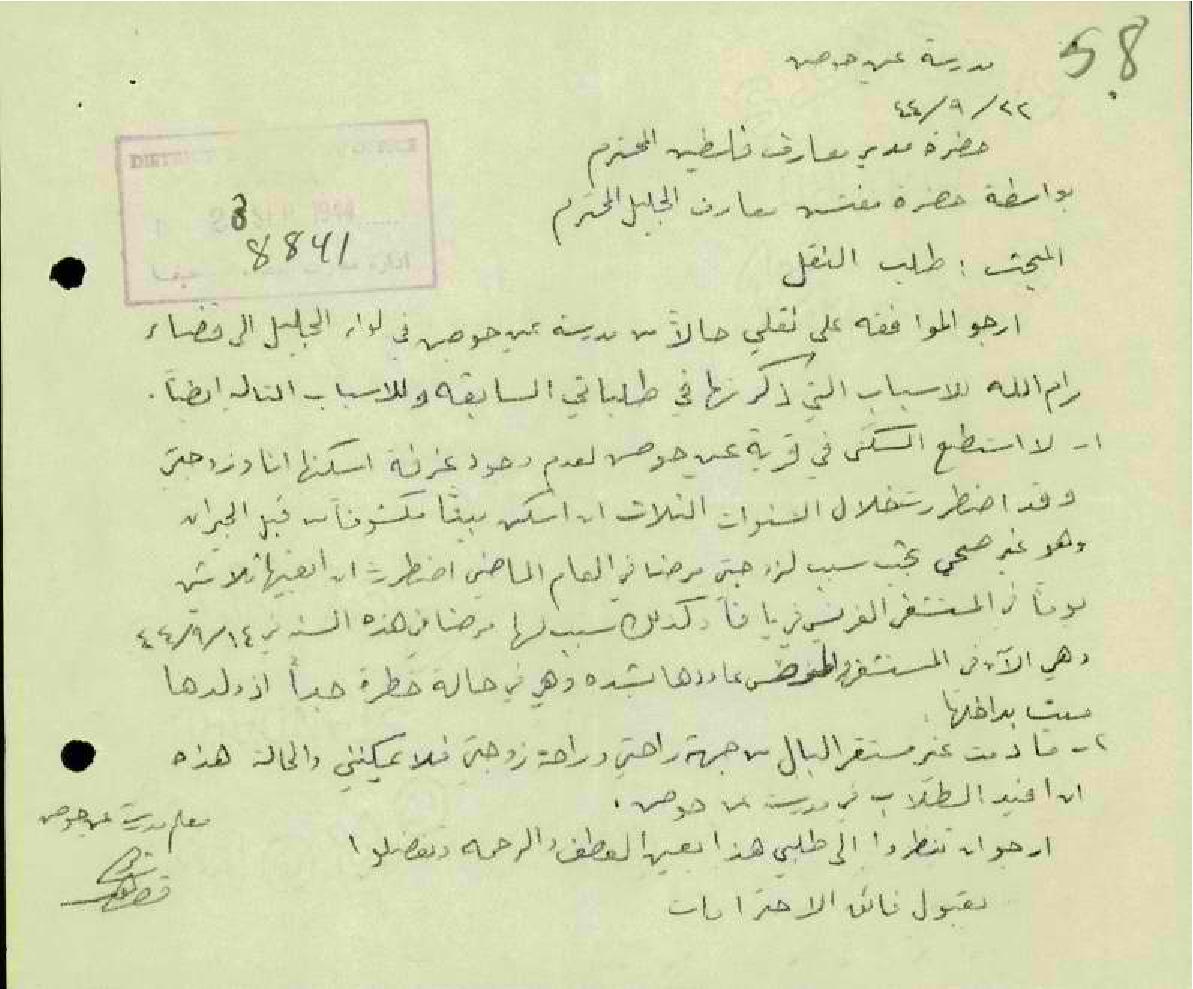 58
مدرسة عين حوض
٢٢/٩/٤٤
حضرة مدير معارف فلسطين المحترم
بواسطة حضرة مفتش معارف الجليل المحترم
DISTRICT OFFICE
SEP 1944
8841
ادارة حيفا
المبحث : طلب النقل
ارجو الموافقه على نقلي حالاً من مدرسة عين حوض في لواء الجليل الى قضاء
رام الله للاسباب التي ذكرتها في طلباتي السابقه وللاسباب التاليه ايضاً .
١- لا استطيع السكنى في قرية عين حوض لعدم وجود غرفة اسكنها انا وزوجتي
وقد اضطررت خلال السنوات الثلاث ان اسكن بيتاً مكشوفاً من قبل الجيران
وهو غير صحي بحيث سبب لزوجتي مرضا في العام الماضي اضطررت ان ابقيها ثلاثين
يوماً في المستشفى الفرنسي في يافا وكذلك سبب لها مرضا في هذه السنه في ١٤/٩/٤٤
وهي الآن في المستشفى والمرض عاودها بشده وهي في حالة خطرة جداً اذ ولدها
ميت بداخلها .
٢- ما دمت غير مستقر البال من جهة راحتي وراحة زوجتي فلا يمكنني والحالة هذه
ان افيد الطلاب في مدرسة عين حوض .
ارجو ان تنظروا الى طلبي هذا بعين العطف والرحمه وتفضلوا
بقبول فائق الاحترامات
معلم مدرسة عين حوض